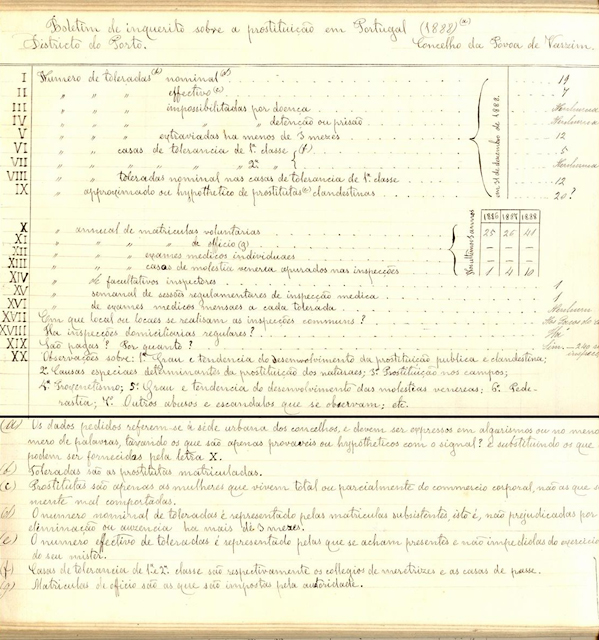 Boletim de inquerito sobre a prostituição em Portugal (1888) (a)
Districto do Porto. Concelho da Povoa de Varzim.
I Numero de toleradas (b) nominal (d) 19
II " " " effectivo (e) 7
III " " " impossibilitadas por doença Nenhuma
IV " " " " " detenção ou prisão Nenhuma
V " " " extraviadas ha menos de 3 mezes 12
VI " " casas de tolerancia de 1ª classe (f) 5
VII " " " " " 2ª " Nenhuma
VIII " " toleradas nominal nas casas de tolerancia de 1ª classe 12
IX " approximado ou hypothetico de prostitutas (c) clandestinas 20?
em 31 de dezembro de 1888.
1886 1887 1888
X " annual de matriculas voluntarias 25 26 41
XI " " " " de officio (g) — — —
XII " " " exames medicos individuaes — — —
XIII " " " casos de molestia venerea apurados nas inspecções 1 4 10
XIV " de facultativos inspectores 1
XV " semanal de sessões regulamentares de inspecção medica 1
XVI " de exames medicos mensaes a cada tolerada Nenhum
XVII Em que local ou locaes se realisam as inspecções communs? Nas casas de
XVIII Ha inspecções domiciliarias regulares?
XIX São pagas? Por quanto? Sim
XX Observações sobre: 1º Grau e tendencia do desenvolvimento da prostituição publica e clandestina;
2º Causas especiaes determinantes da prostituição dos naturaes; 3º Prostituição nos campos;
4º Proxenetismo; 5º Grau e tendencia do desenvolvimento das molestias venereas; 6º Pede-
rastia; 7º Outros abusos e escandalos que se observam; etc.
(a) Os dados pedidos referem-se á séde urbana dos concelhos, e devem ser expressos em algarismos ou no menor
mero de palavras, travando os que são apenas provaveis ou hypotheticos com o signal ? e substituindo os que
podem ser fornecidas pela letra X.
(b) Toleradas são as prostitutas matriculadas.
(c) Prostitutas são apenas as mulheres que vivem total ou parcialmente do commercio corporal, não as que
mente mal comportadas.
(d) O numero nominal de toleradas é representado pelas matriculas subsistentes, isto é, não prejudicadas por
eliminação ou auzencia ha mais de 3 mezes.
(e) O numero effectivo de toleradas é representado pelas que se acham presentes e não impedidas do exercicio
do seu mister.
(f) Casas de tolerancia de 1ª e 2ª classe são respectivamente os collegios de meretrizes e as casas de passe.
(g) Matriculas de officio são as que são impostas pela autoridade.